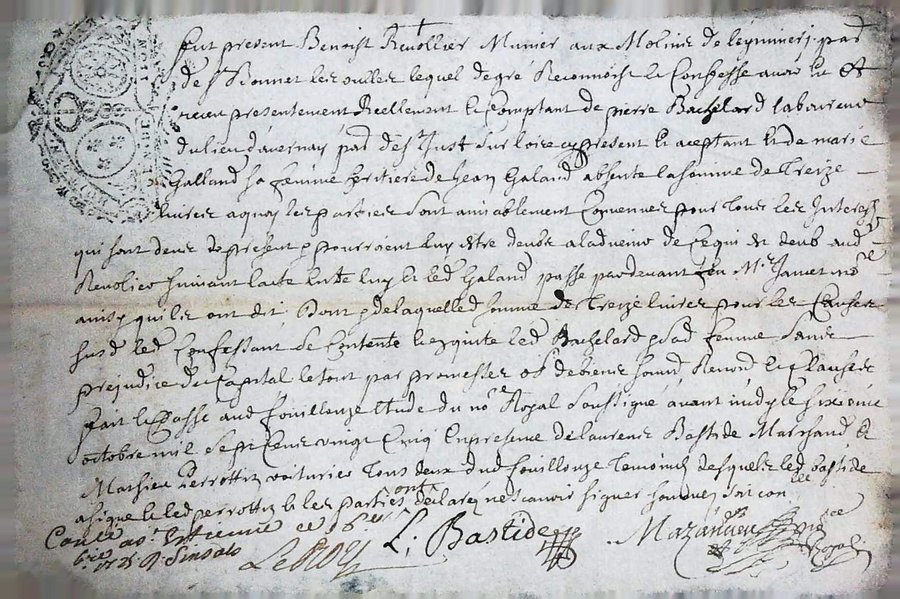 fut present Benoist Revollier Munier aux Molins de leyminieres par
de st Bonnet les oulles lequel de gré Reconnoist et Confesse avoir Eu et
receu presentement Reellement et Comptant de pierre Bachelard laboureur
du lieu d'avernay par de st Just sur loire cy present et aceptant et de marie
Galland sa femme heritiere de Jean Galand absente la somme de Treize
livres a quoy les parties sont amiablement Convenues pour tous les Interests
qui sont deus de present pourroient luy estre deubs de ce qui est deub aud
Revolier suivant lacte Entre luy et led Galand passé pardevant feu Mr Jamet nore
ainsy quils ont dit Dont de laquelle somme de Treize livres pour les Causes
susd led Confessant se Contente et quitte led Bachelard sad femme sans
prejudice du Capital le tout par promesses obs de biens soumd Renond et Clauses
fait et Passé aud fouillouze Etude du nore Royal soussigné avant midy le sixieme
octobre mil sept cens vingt Cinq En presence de laurens Bastide Marchand et
Mathieu Perrottin voiturier tous deux dud fouillouze temoins desquels led bastide
a signé et led perrottin et les parties ont declaré ne scavoir signer sommés
Conlé a st Estienne ce 16
L. Bastide
Royal